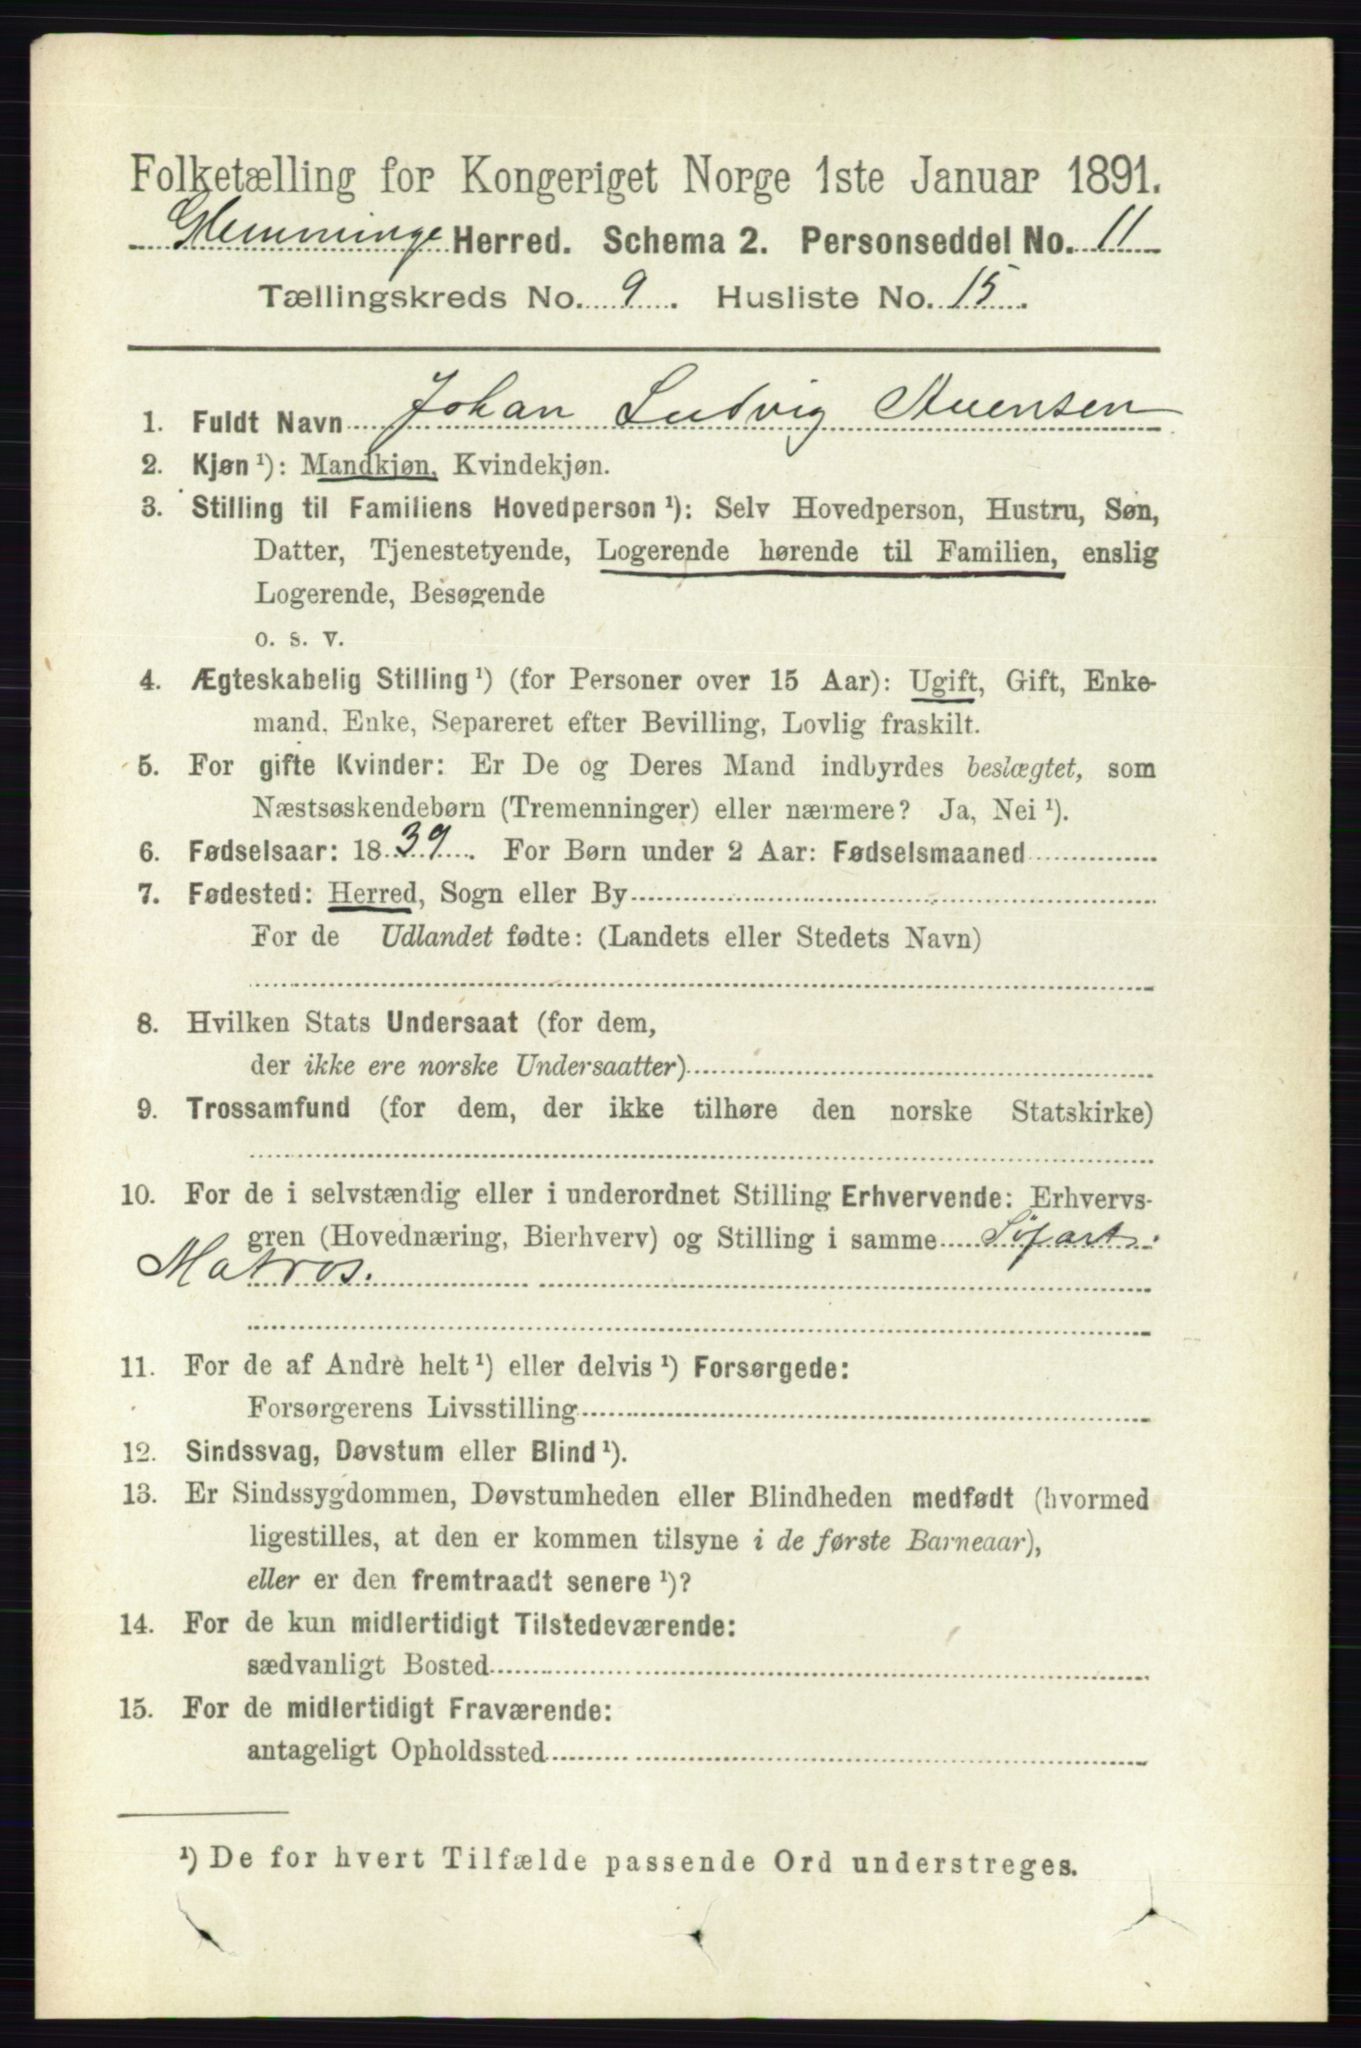 Folketælling for Kongeriget Norge 1ste Januar 1891.
Glemminge Herred. Schema 2. Personseddel No. 11
Tællingskreds No. 9. Husliste No. 15.
1. Fuldt Navn Johan Ludvig
2. Kjøn ¹): Mandkjøn, Kvindekjøn.
3. Stilling til Familiens Hovedperson ¹): Selv Hovedperson, Hustru, Søn,
Datter, Tjenestetyende, Logerende hørende til Familien, enslig
Logerende, Besøgende
o. s. v.
4. Ægteskabelig Stilling ¹) (for Personer over 15 Aar): Ugift, Gift, Enke-
mand, Enke, Separeret efter Bevilling, Lovlig fraskilt.
5. For gifte Kvinder: Er De og Deres Mand indbyrdes beslægtet, som
Næstsøskendebørn (Tremenninger) eller nærmere? Ja, Nei ¹).
6. Fødselsaar: 1839. For Børn under 2 Aar: Fødselsmaaned
7. Fødested: Herred, Sogn eller By
For de Udlandet fødte: (Landets eller Stedets Navn)
8. Hvilken Stats Undersaat (for dem,
der ikke ere norske Undersaatter)
9. Trossamfund (for dem, der ikke tilhøre den norske Statskirke)
10. For de i selvstændig eller i underordnet Stilling Erhvervende: Erhvervs-
gren (Hovednæring, Bierhverv) og Stilling i samme Söfart.
Matros.
11. For de af Andre helt ¹) eller delvis ¹) Forsørgede:
Forsørgerens Livsstilling
12. Sindssvag, Døvstum eller Blind ¹).
13. Er Sindssygdommen, Døvstumheden eller Blindheden medfødt (hvormed
ligestilles, at den er kommen tilsyne i de første Barneaar),
eller er den fremtraadt senere ¹)?
14. For de kun midlertidigt Tilstedeværende:
sædvanligt Bosted
15. For de midlertidigt Fraværende:
antageligt Opholdssted
¹) De for hvert Tilfælde passende Ord understreges.